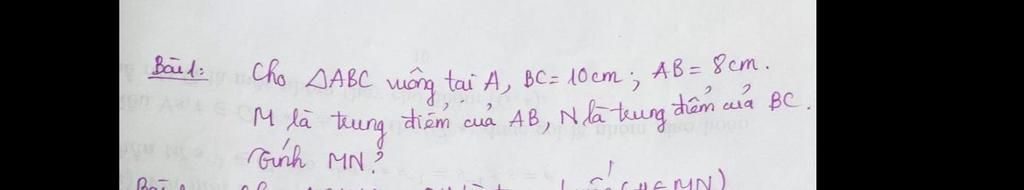 Bài 1: Cho △ABC vuông tại A, BC = 10cm; AB = 8cm.
M là trung điểm của AB, N là trung điểm của BC.
Tính MN?